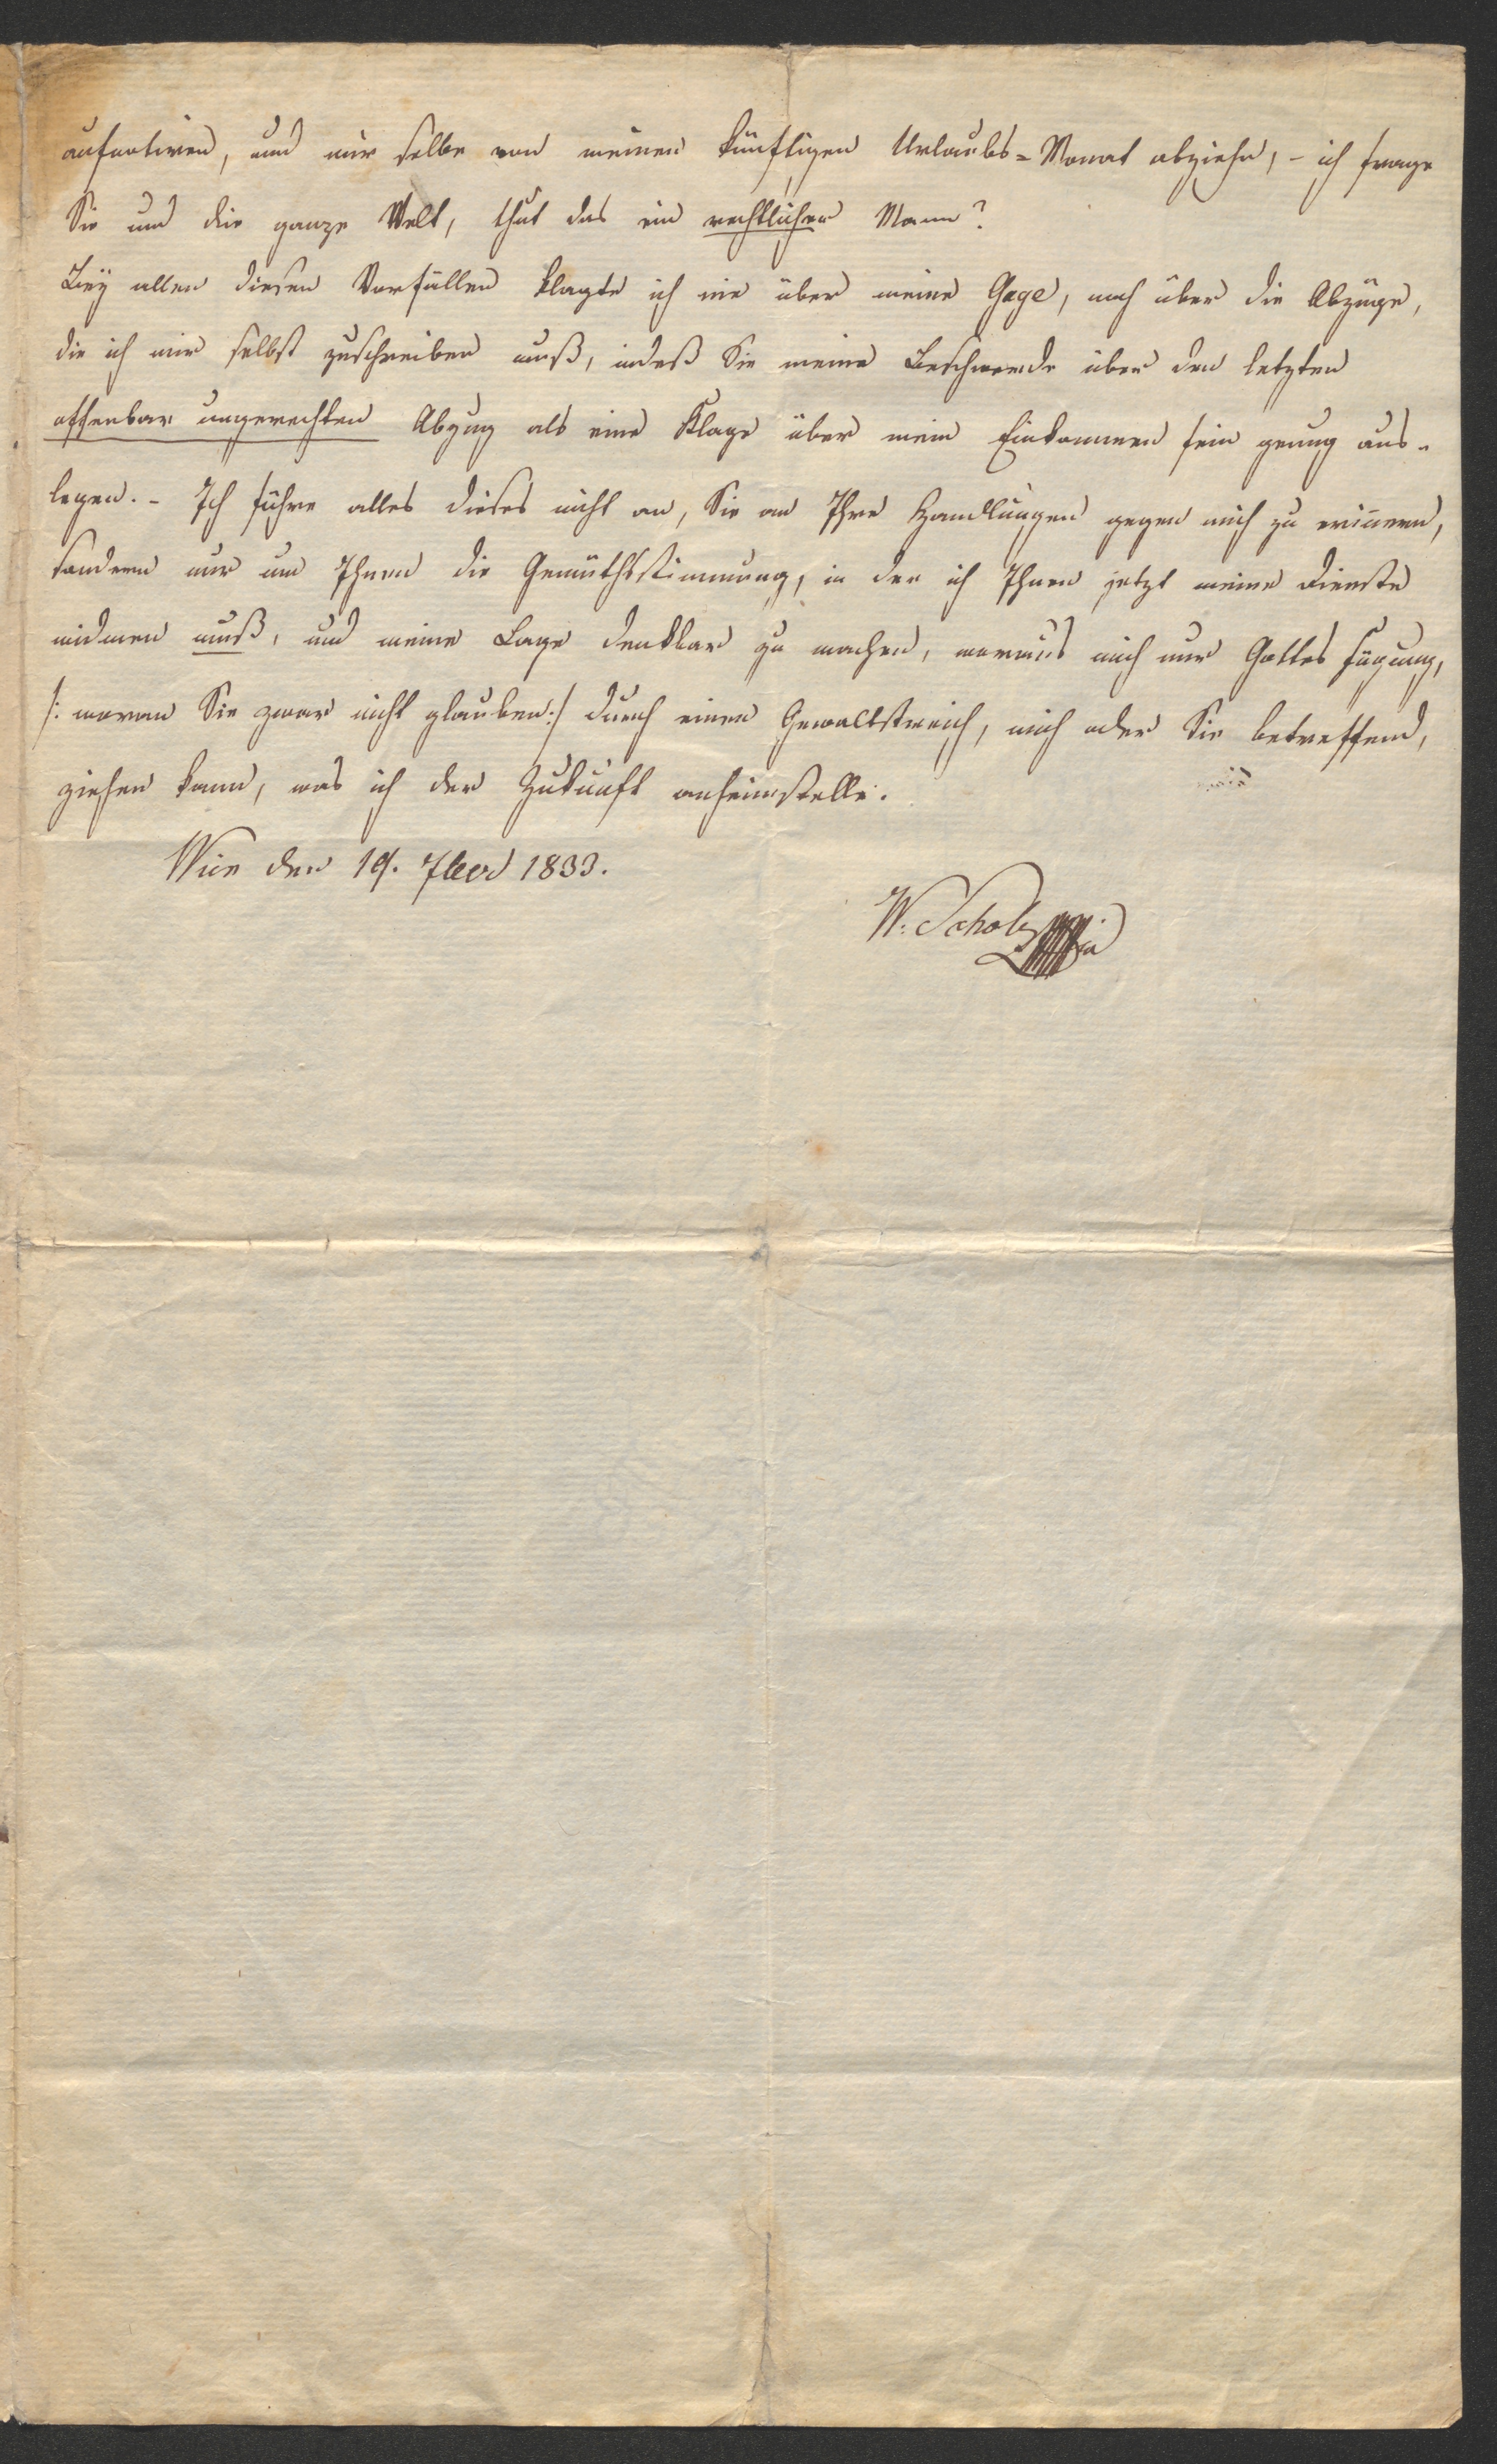 aufnotiren, und mir selbe von meinen künftigen Urlaubs=Monat abziehn, – ich frage
Sie und die ganze Welt, thut das ein rechtlicher Mann?
Bey allen diesen Vorfällen klagte ich nie über meine Gage, noch über die Abzüge,
die ich mir selbst zuschreiben muß, indeß Sie meine Beschwerde über den letzten
offenbar ungerechten Abzug als eine Klage über mein Einkommen fein genug aus-
legen. – Ich führe alles dieses nicht an, Sie an Ihre Handlungen gegen mich zu erinnern,
sondern nur um Ihnen die Gemüthsstimmung, in der ich Ihnen jetzt meine Dienste
widmen muß, und meine Lage denkbar zu machen, woraus mich nur Gottes Fügung,
/: woran Sie zwar nicht glauben:/ durch einen Gewaltstreich, mich oder Sie betreffend,
ziehen kann, was ich der Zukunft anheimstelle.
Wien den 19. 7ber 1833.
W. Scholz